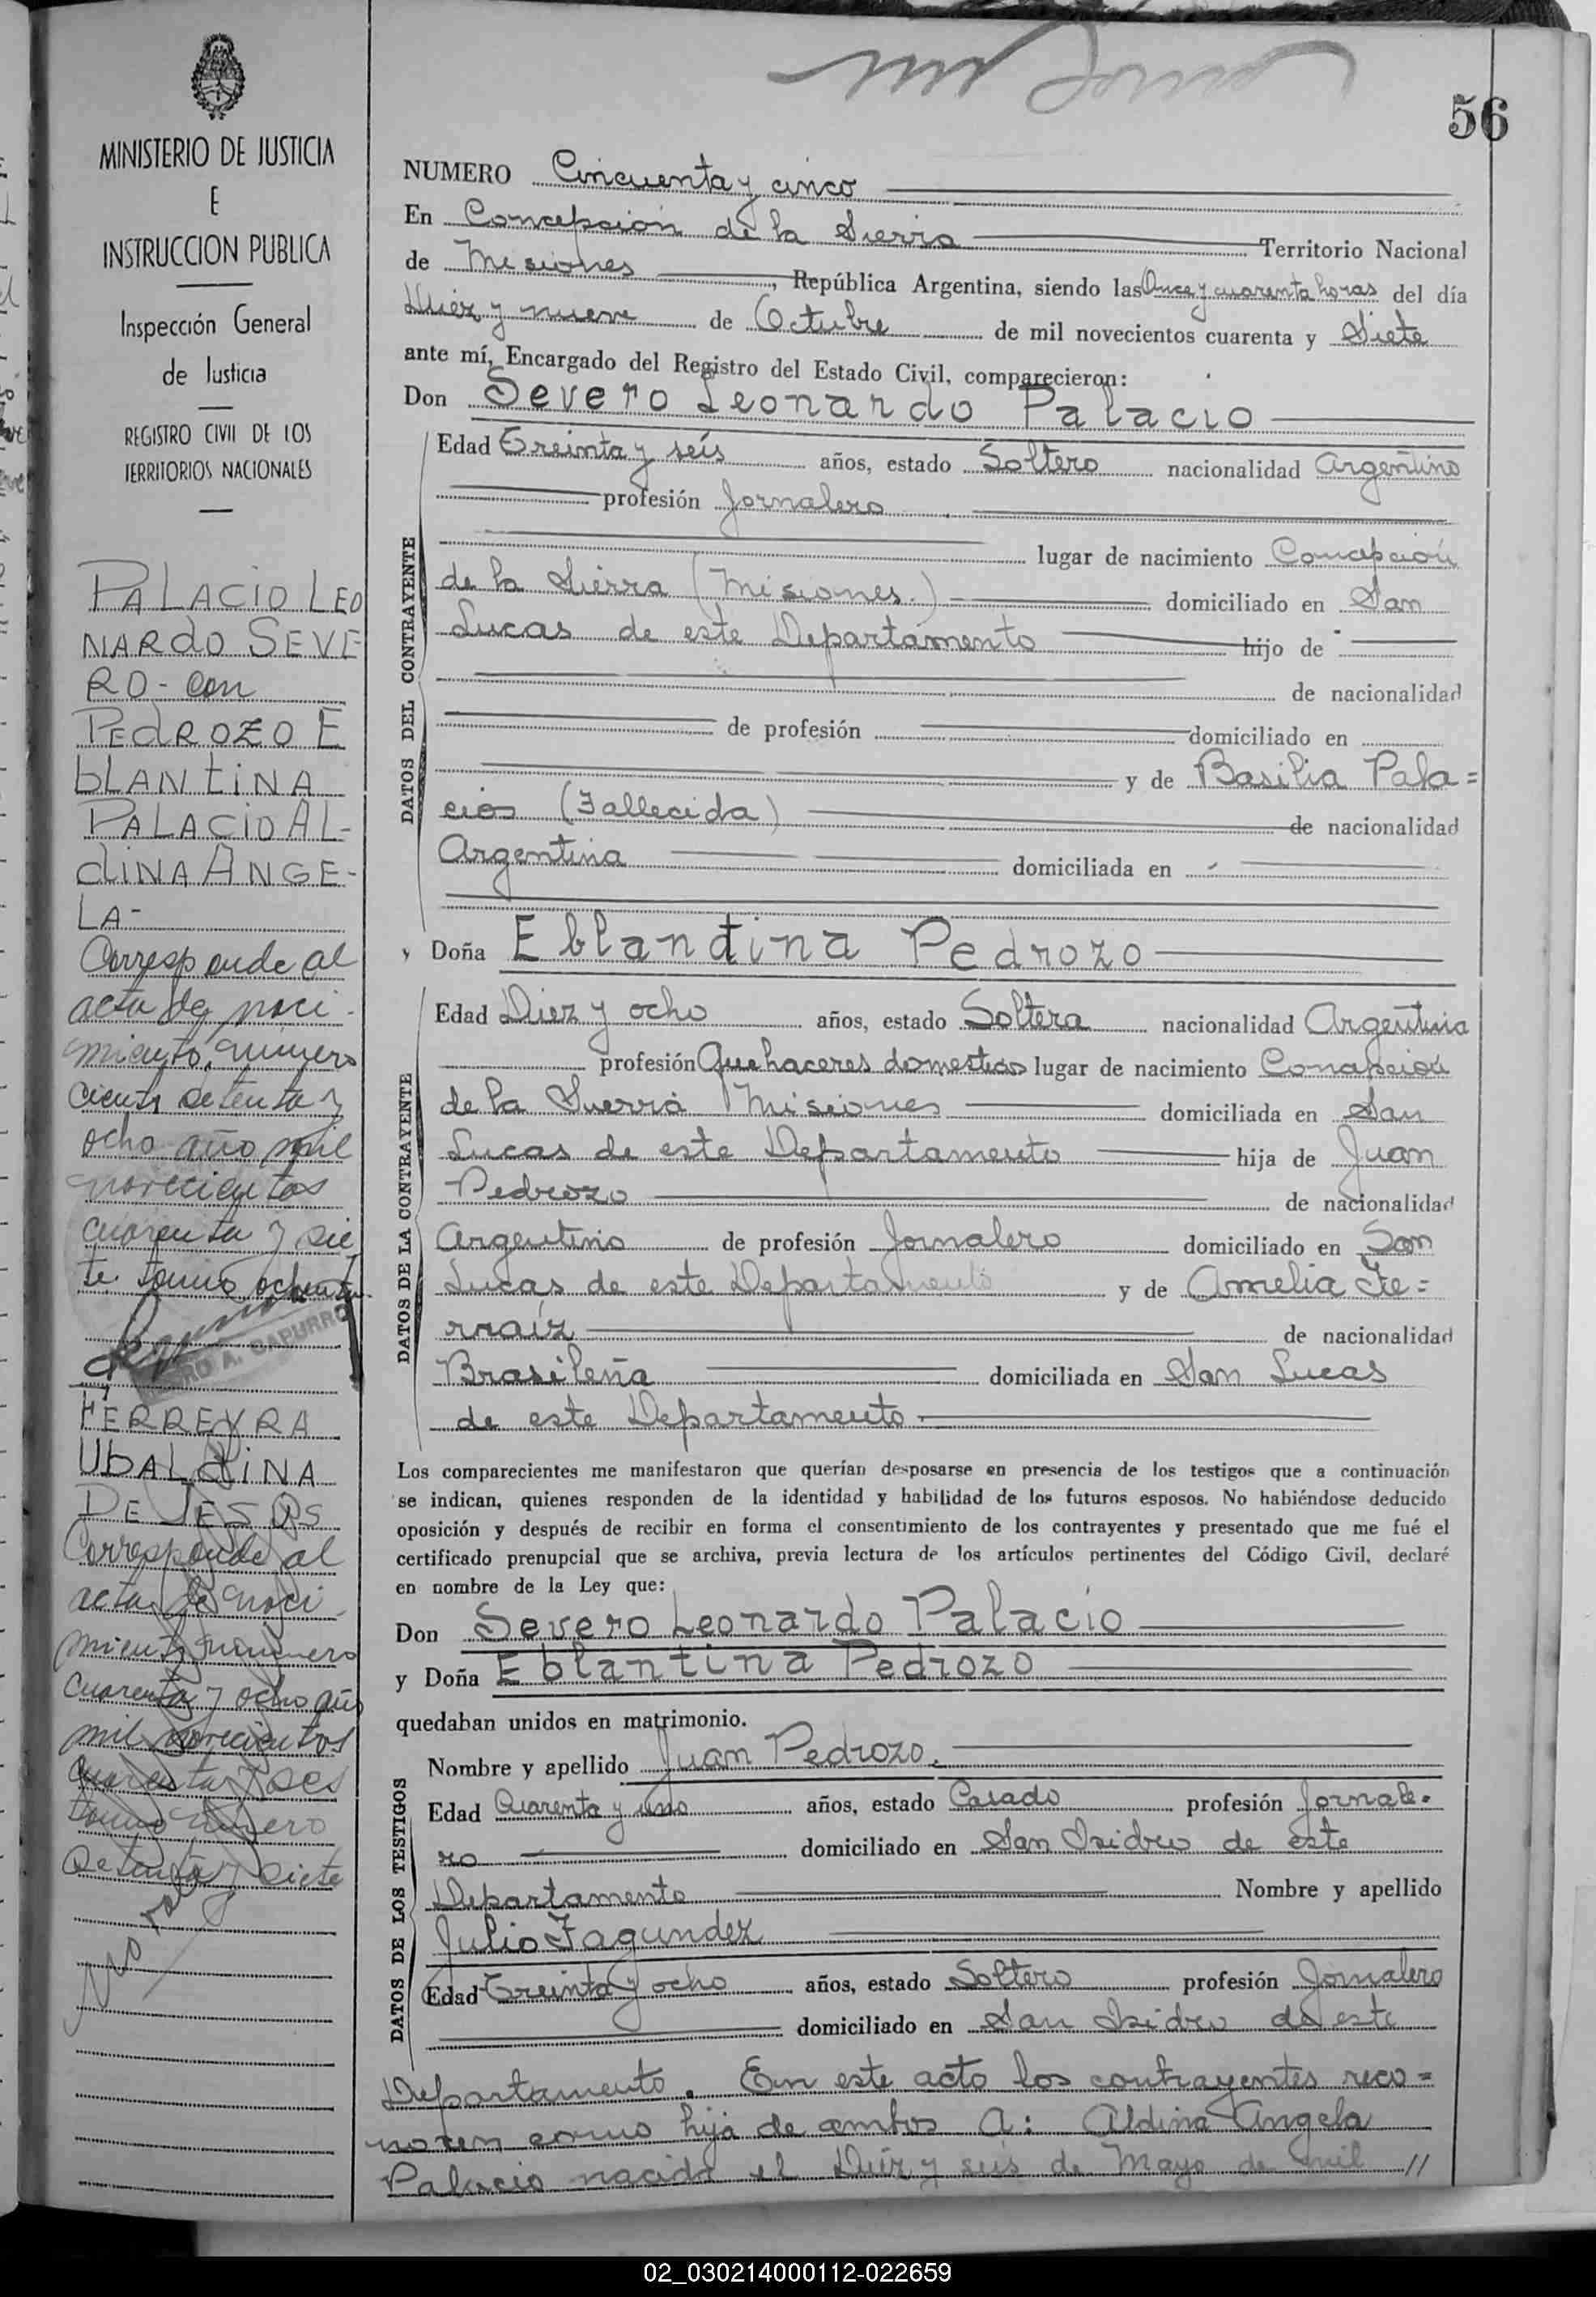 56
MINISTERIO DE JUSTICIA
E
INSTRUCCION PUBLICA
Inspección General
de Justicia
REGISTRO CIVIL DE LOS
TERRITORIOS NACIONALES
PALACIO LEO
NARdO SEVE
RO - con
PEdROZO E
bLANtINA
PALACIO AL-
dINA ANGE-
LA-
Corresponde al
acta de naci-
miento, número
ciento setenta y
ocho año mil
novecientos
cuarenta y sie
te tomo ochenta
A. CAPURRO
FERREYRA
UbALdINA
DE JESUS
Corresponde al
acta de naci-
miento número
cuarenta y ocho año
mil novecientos
cuarenta y seis
tomo número
setenta y siete
No
NUMERO Cincuenta y cinco
En Concepción de la Sierra Territorio Nacional
de Misiones, República Argentina, siendo las Once y cuarenta horas del día
Diez y nueve de Octubre de mil novecientos cuarenta y Siete
ante mí, Encargado del Registro del Estado Civil, comparecieron:
Don Severo Leonardo Palacio
DATOS DEL CONTRAYENTE
Edad Treinta y seis años, estado Soltero nacionalidad Argentino
profesión Jornalero
lugar de nacimiento Concepción
de la Sierra (Misiones.) domiciliado en San
Lucas de este Departamento hijo de
de nacionalidad
de profesión domiciliado en
y de Basilia Pala=
cios (Fallecida) de nacionalidad
Argentina domiciliada en
y Doña Eblantina Pedrozo
DATOS DE LA CONTRAYENTE
Edad Diez y ocho años, estado Soltera nacionalidad Argentina
profesión Quehaceres domesticos lugar de nacimiento Concepción
de la Sierra Misiones domiciliada en San
Lucas de este Departamento hija de Juan
Pedrozo de nacionalidad
Argentino de profesión Jornalero domiciliado en San
Lucas de este Departamento y de Amelia Fe=
rraiz de nacionalidad
Brasileña domiciliada en San Lucas
de este Departamento.
Los comparecientes me manifestaron que querían desposarse en presencia de los testigos que a continuación
se indican, quienes responden de la identidad y habilidad de los futuros esposos. No habiéndose deducido
oposición y después de recibir en forma el consentimiento de los contrayentes y presentado que me fué el
certificado prenupcial que se archiva, previa lectura de los artículos pertinentes del Código Civil, declaré
en nombre de la Ley que:
Don Severo Leonardo Palacio
y Doña Eblantina Pedrozo
quedaban unidos en matrimonio.
DATOS DE LOS TESTIGOS
Nombre y apellido Juan Pedrozo.
Edad Cuarenta y uno años, estado Casado profesión Jornale-
ro domiciliado en San Isidro de este
Departamento Nombre y apellido
Julio Fagundez
Edad Treinta y ocho años, estado Soltero profesión Jornalero
domiciliado en San Isidro de este
Departamento. En este acto los contrayentes reco=
nocen como hija de ambos A: Aldina Angela
Palacio nacida el Diez y seis de Mayo de mil //
02_030214000112-022659